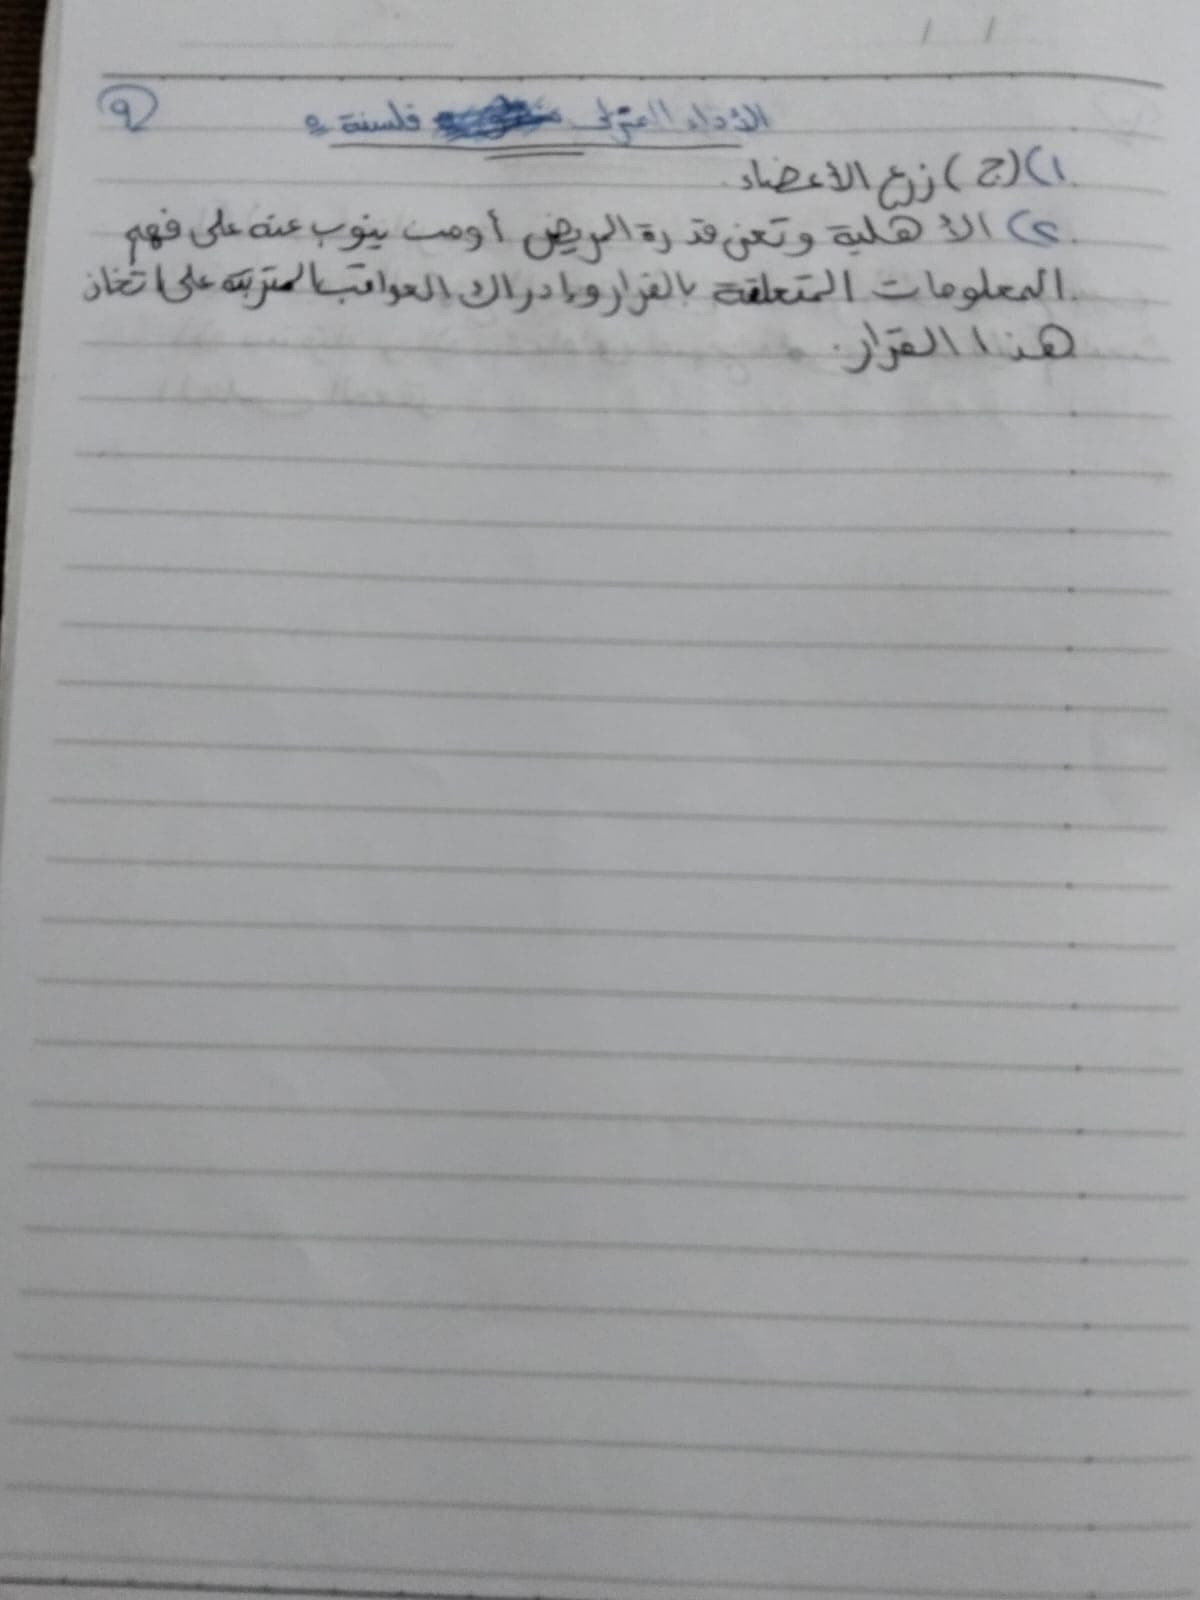 ٩
الأداء المنزلى فلسفة
١)(ج) زرع الأعضاء
٢) الأهلية وتعنى قدرة المريض أو من ينوب عنه على فهم
المعلومات المتعلقة بالقرار وإدراك العواقب المترتبة على اتخاذ
هذا القرار.